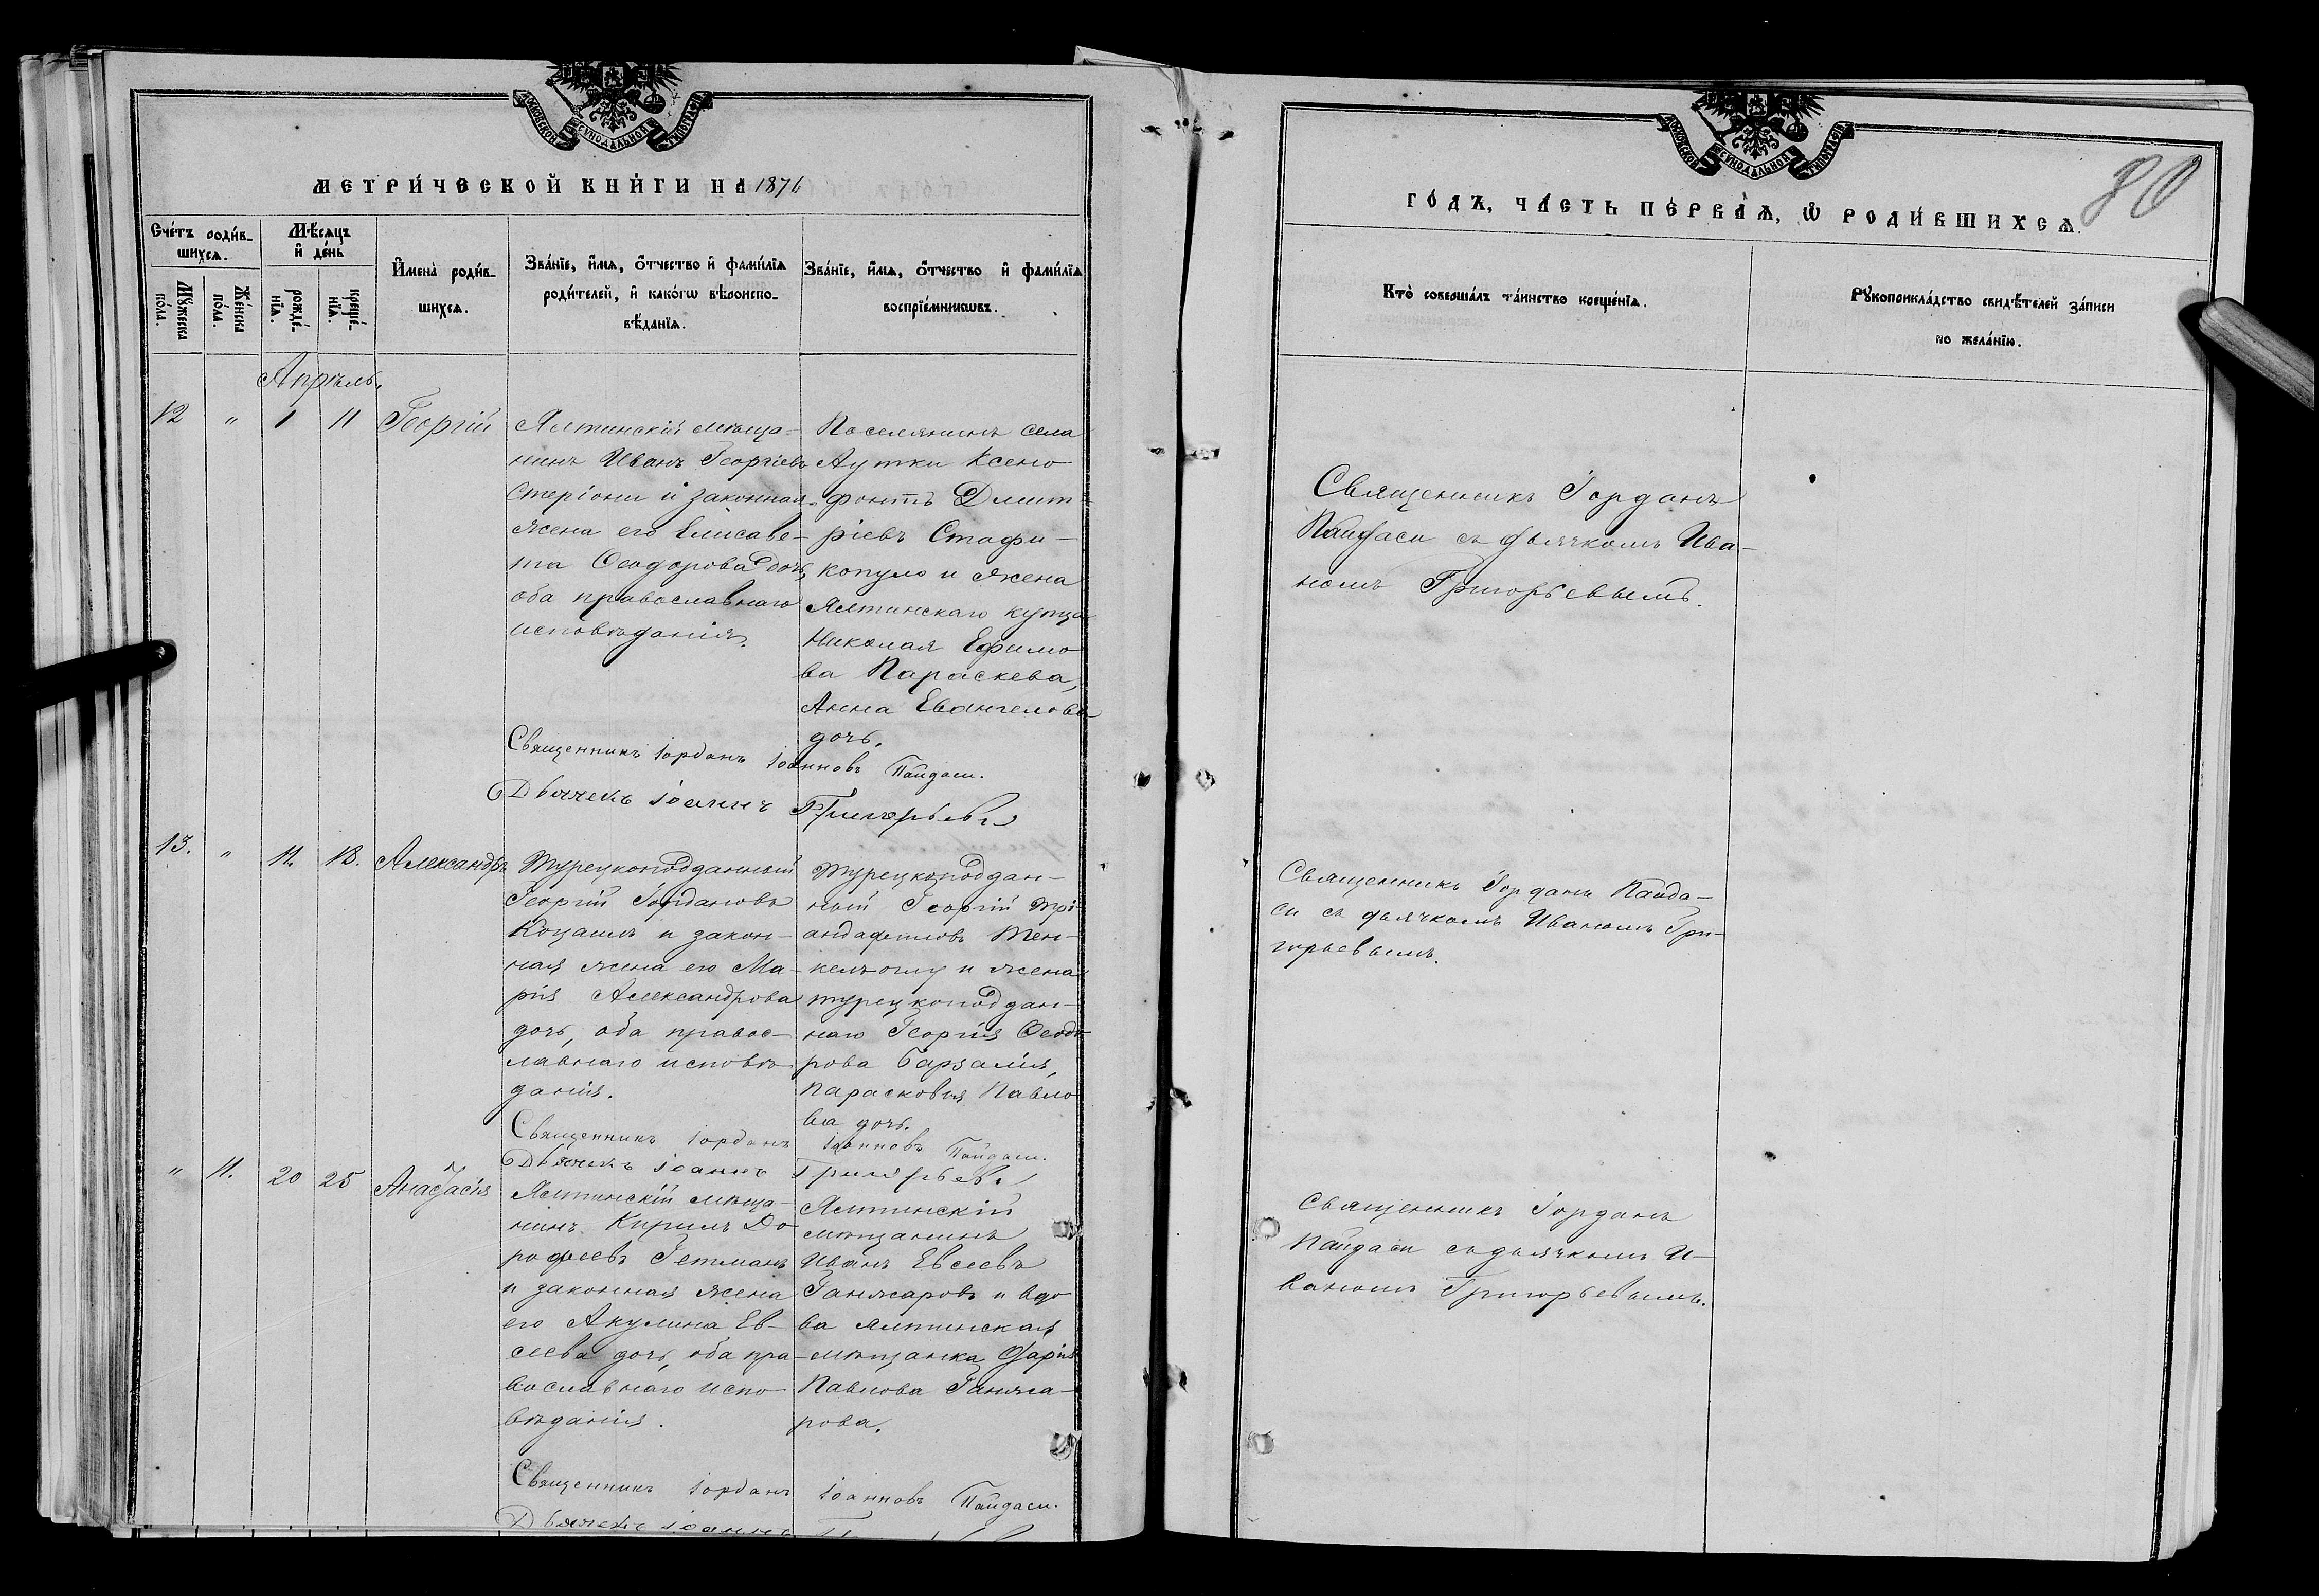 МОСКОВСКОЙ СѴНОДАЛЬНОЙ ТИПОГРАФІИ
МЕТРИ́ЧЕСКОЙ КНИ́ГИ НА 1876
Сче́тъ роди́в-
шихсѧ.
Мѣ́сѧцъ
и҆ де́нь
И҆мена̀ роди́в-
шихсѧ.
Зва́нїе, и҆́мѧ, ѻ҆́тчество и҆ фами́лїѧ
роди́телей, и҆ како́гѡ вѣроиспо-
вѣ́данїѧ.
Зва́нїе, и҆́мѧ, ѻ҆́тчество и҆ фами́лїѧ
воспрїе́мникѡвъ.
Мꙋ́жеска
по́ла.
Же́нска
по́ла.
рожде́-
нїѧ.
креще́-
нїѧ.
Апрѣль.
12 " 1 11 Георгій
Ялтинскій мѣща-
нинъ Иванъ Георгіевъ
Стеріони и законная
жена его Елисаве-
та Ѳеодорова дочь,
оба православнаго
исповѣданія.
Поселянинъ села
Аутки Ксено-
фонтъ Дмит-
ріевъ Стафи-
копуло и жена
Ялтинскаго купца
Николая Ефимо
ва Параскева,
Анна Евангелова
дочь.
Священникъ Іорданъ Іоанновъ Пайдаси.
Дьячекъ Іоаннъ Григорьевъ
13. " 11. 18. Александръ
Турецкоподданный
Георгій Іордановъ
и закон-
ная жена его Ма-
рія Александрова
дочь, оба правос-
лавнаго исповѣ-
данія.
Турецкоподдан-
ный Георгій Трі-
андафиловъ Тен-
келъоглу и жена
турецкоподдан-
наго Георгія Ѳеодо
рова Барзалія,
Парасковія Павло
ва дочь.
Священникъ Іорданъ Іоанновъ Пайдаси.
Дьячекъ Іоаннъ Григорьевъ
" 11. 20 25 Анастасія
Ялтинскій мѣща-
нинъ Кирилъ До
рофеевъ Гетманъ
и законная жена
его Акулина Ев-
сеева дочь, оба пра-
вославнаго испо-
вѣданія.
Ялтинскій
мѣщанинъ
Иванъ Евсеевъ
Ганжаровъ и вдо
ва ялтинская
мѣщанка Дарія
Павлова Ганжа-
рова.
Священникъ Іорданъ Іоанновъ Пайдаси.
Дьячекъ Іоаннъ
МОСКОВСКОЙ СѴНОДАЛЬНОЙ ТИПОГРАФІИ
80
ГО́ДЪ, ЧА́СТЬ ПЕ́РВАѦ, Ѡ҆ РОДИ́ВШИХСѦ.
Кто̀ соверша́лъ та́инство креще́нїѧ.
Рꙋкоприкла́дство свидѣ́телей за́писи
по жела́нїю.
Священникъ Іорданъ
Пайдаси съ дьячкомъ Ива-
номъ Григорьевымъ.
Священникъ Іорданъ Пайда-
си съ дьячкомъ Иваномъ Гри-
горьевымъ.
Священникъ Іорданъ
Пайдаси съ дьячкомъ И-
ваномъ Григорьевымъ.